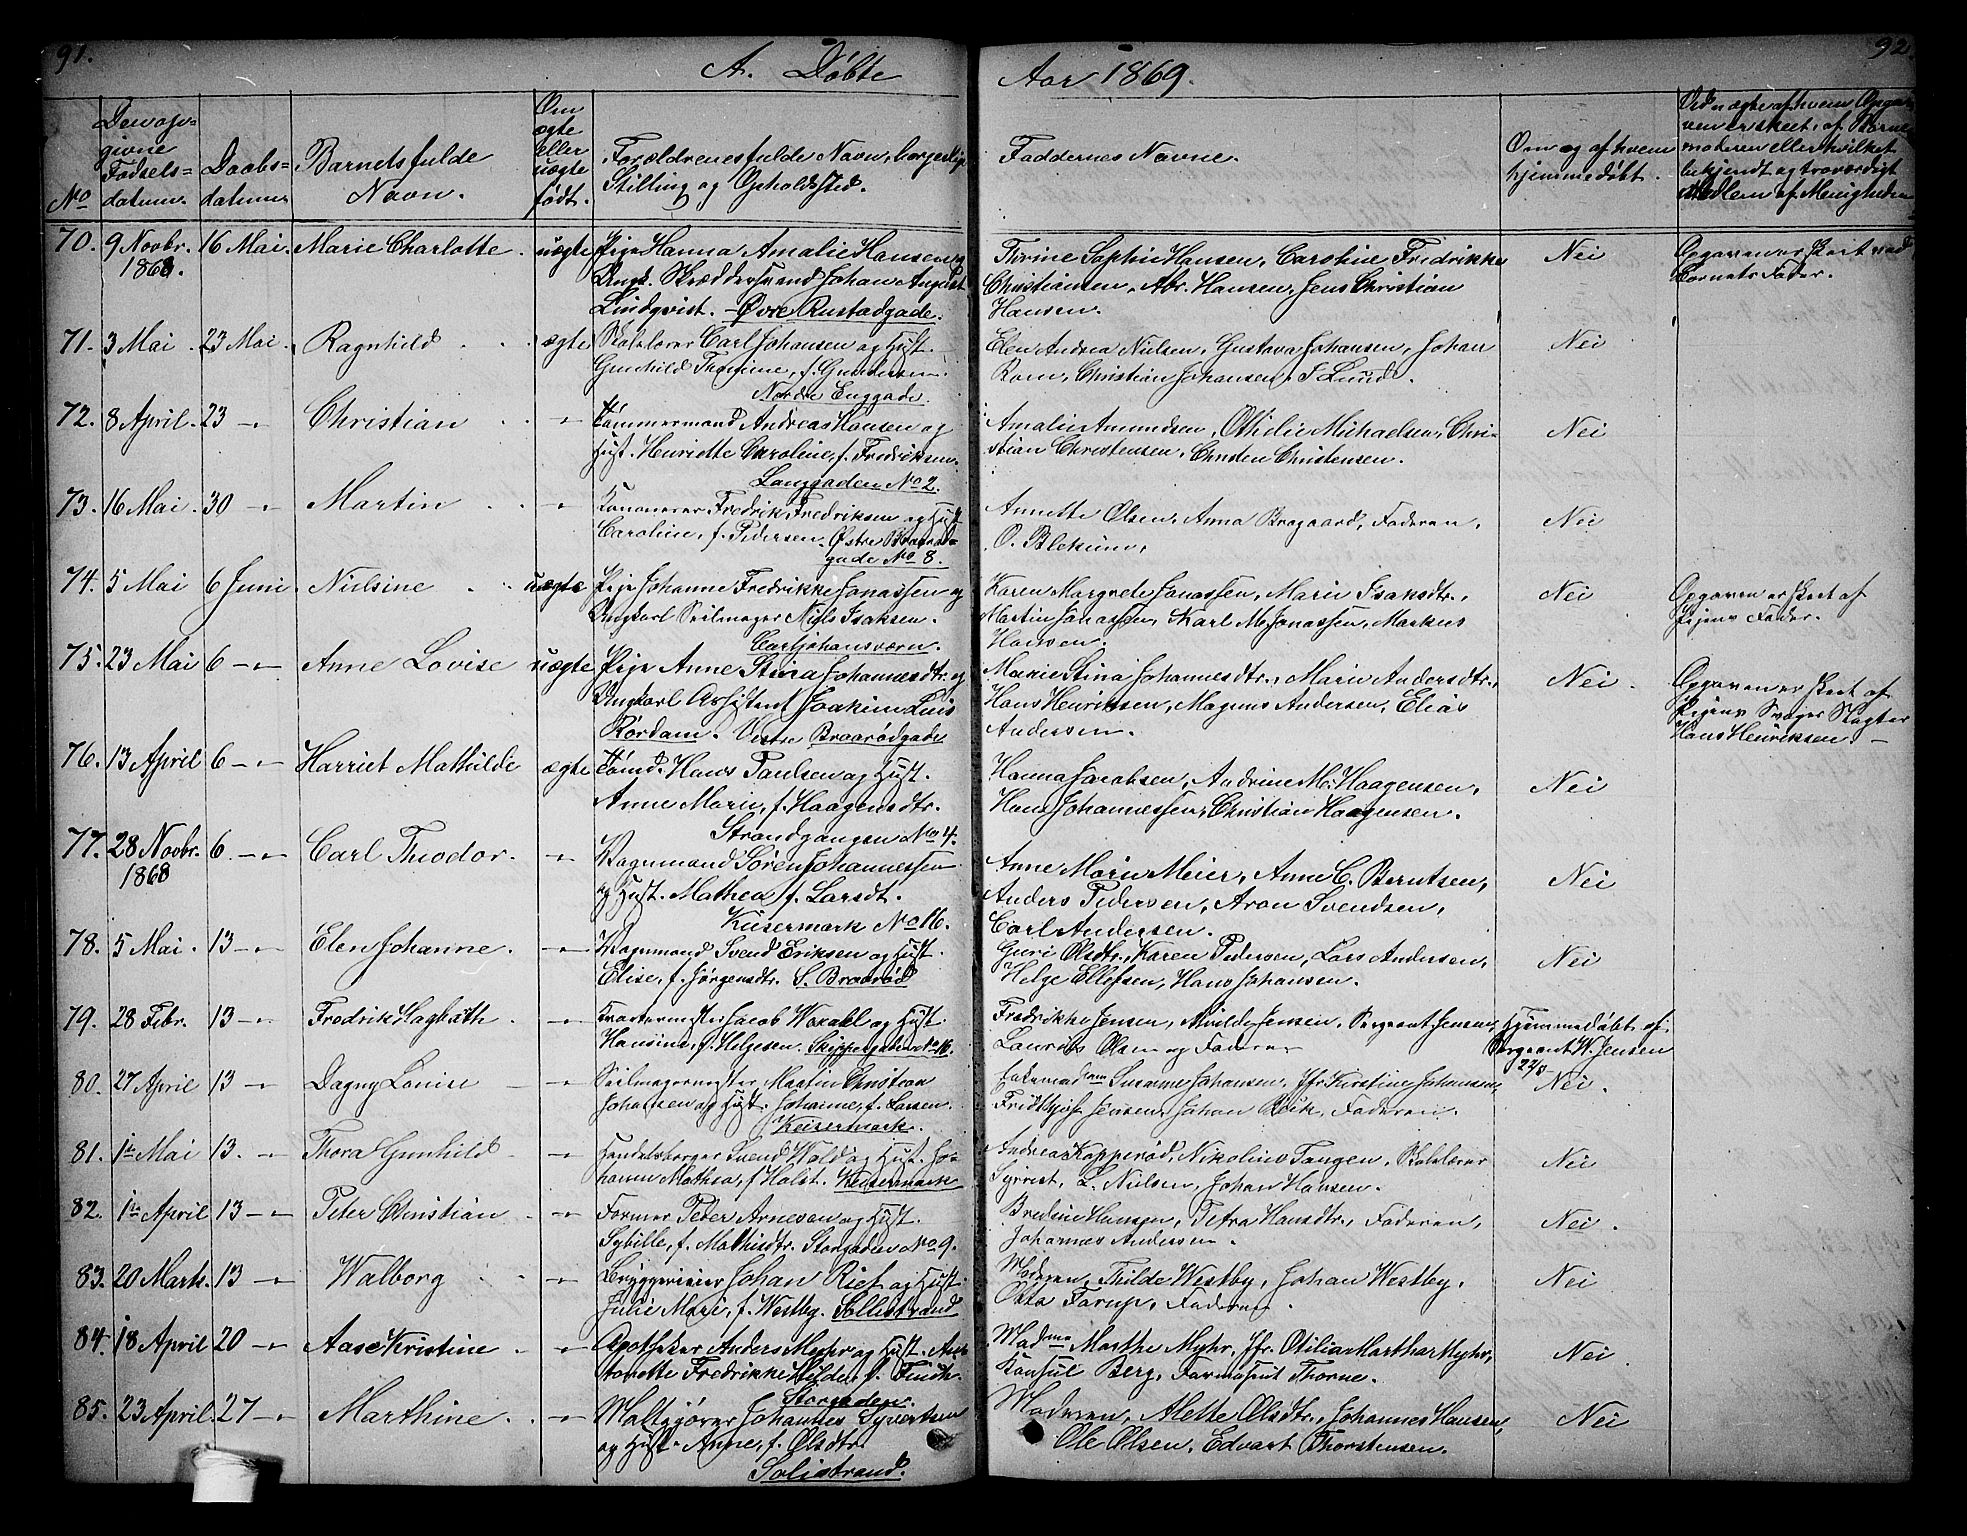 91.
A. Døbte
Aar 1869.
92
No
Den opgivne Fødselsdatum.
Daabsdatum.
Barnets fulde Navn.
Om ægte eller uægte født.
Forældrenes fulde Navn, borgerlige Stilling og Opholdssted.
Faddernes Navne.
Om og af hvem hjemmedøbt.
Ved uægte af hvem Opgaven er skeet, af Barnemoderen eller hvilket bekjendt og troværdigt Medlem af Menigheden
70. 9 Novbr. 1868. 16 Mai. Marie Charlotte. uægte Pige Hanna Amalie Hansen og
Ungk. Skræddersvend Johan August
Lindqvist. Øvre Rustadgade.
Thrine Sophie Hansen, Caroline Fredrikke
Christiansen, Abr. Hansen, Jens Christian
Hansen.
Nei
Opgaven er skeet ved
Barnets Fader.
71. 3 Mai. 23 Mai. Ragnhild ægte Skolelærer Carl Johansen og Hust.
Gunhild Thomine, f. Gundersen.
Nordre Enggade.
Elen Andrea Nielsen, Gustava Johansen, Johan
Rom, Christian Johansen, T. Lund.
Nei
72. 8 April. 23 -"- Christian -"- Tømmermand Andreas Hansen og
Hust. Henriette Caroline, f. Fredriksen.
Langgaden No 2.
Amalie Amundsen, Othilie Michaelsen, Chri-
stian Christensen, Christen Christensen.
Nei
73. 16 Mai. 30 -"- Martin -"- Kanonerer Fredrik Fredriksen og Hust
Caroline, f. Pedersen. Østre Braarød-
gade No 8.
Annette Olsen, Anna Bragaard, Faderen,
O. Blekum.
Nei
74. 5 Mai 6 Juni Nielsine uægte Pige Johanne Fredrikke Jonassen og
Ungkarl Seilmager Niels Isaksen.
Carljohansværn.
Karen Margrete Jonassen, Marie Isaksdtr.,
Martin Jonassen, Karl M. Jonassen, Markus
Hansen.
Nei
Opgaven er skeet af
Pigens Fader.
75. 23 Mai 6 -"- Anne Lovise uægte Pige Anne Stina Johannesdtr. og
Ungkarl Assistent Joakim Luis
Rørdam. Vestre Braarødgade
Marie Stina Johannesdtr., Marie Andersdtr.,
Hans Henriksen, Magnus Andersen, Elias
Andersen.
Nei.
Opgaven er skeet af
Pigens Svoger Slagter
Hans Henriksen.
76. 13 April 6 -"- Harriet Mathilde ægte Tømd. Hans Paulsen og Hust.
Anne Marie, f. Haagensdtr.
Strandgangen No 4.
Hanna Jacobsen, Andrine M. Haagensen,
Hans Johannessen, Christian Haagensen.
Nei
77. 28 Novbr. 1868 6. -"- Carl Theodor. -"- Vognmand Søren Johannessen
og Hust. Mathea f. Larsdt.
Keisermark No 16.
Anne Marie Meier, Anne C. Berntsen,
Anders Pedersen, Aron Svendsen,
Carl Andersen.
Nei
78. 5 Mai. 13 -"- Elen Johanne. -"- Vognmand Svend Eriksen og Hust.
Elise, f. Jørgensdtr. S. Braarød
Guri Olsdtr., Karen Pedersen, Lars Andersen,
Helge Ellefsen, Hans Johansen.
Nei
79. 28 Febr. 13 -"- Fredrik Hagbath. -"- Kvartermester Jacob Woxall og Hust.
Hansine, f. Helgesen. Skippergaden No 16.
Fredrikke Jensen, Milde Jensen, Sergeant Jensen,
Laurits Olsen og Faderen
Hjemmedøbt af
Sergeant W. Jensen
80. 27 April 13 -"- Dagny Louise -"- Seilmagermester Martin Christian
Johansen og Hust. Johanne, f. Larsen.
Keisermark.
Susanne Johansen, Jfr. Kirstine Johansen,
Fridthjof Jensen, Johan Röik, Faderen.
Nei.
81. 1te Mai 13. -"- Thora Gunhild -"- Handelsborger Svend Wold og Hust. Jo-
hanne Mathea, f. Holst. Keisermark
Andrea Kopperød, Nikoline Tangen, Skolelærer
L. Nielsen, Johan Hansen.
Nei
82. 1te April 13 -"- Peter Christian -"- Former Peter Arnesen og Hust.
Sybille, f. Mathisdtr. Storgaden No 9.
Bredine Hansen, Petra Hansdtr., Faderen,
Johannes Andersen.
Nei.
83. 20 Marts. 13 -"- Walborg -"- Bryggerieier Johan Riet og Hust.
Julie Marie, f. Westby. Sollistrand
Moderen, Thilde Westby, Johan Westby,
Otto Farup, Faderen.
Nei
84. 18 April 20 -"- Aase Kristine -"- Apotheker Anders Myhr og Hust. An-
tonette Fredrikke Hilda f. Finch.
Storgaden.
Madme Marthe Myhr, Jfr. Otilia Martha Myhr,
Konsul Berg, Farmaseut Thorne.
Nei
85. 23 April. 27 -"- Marthine -"- Maltgjører Johannes Syvertsen
og Hust. Anne, f. Olsdtr.
Solistrand.
Moderen, Mette Olsdtr., Johannes Hansen,
Ole Olsen, Edvart Thorstensen.
Nei